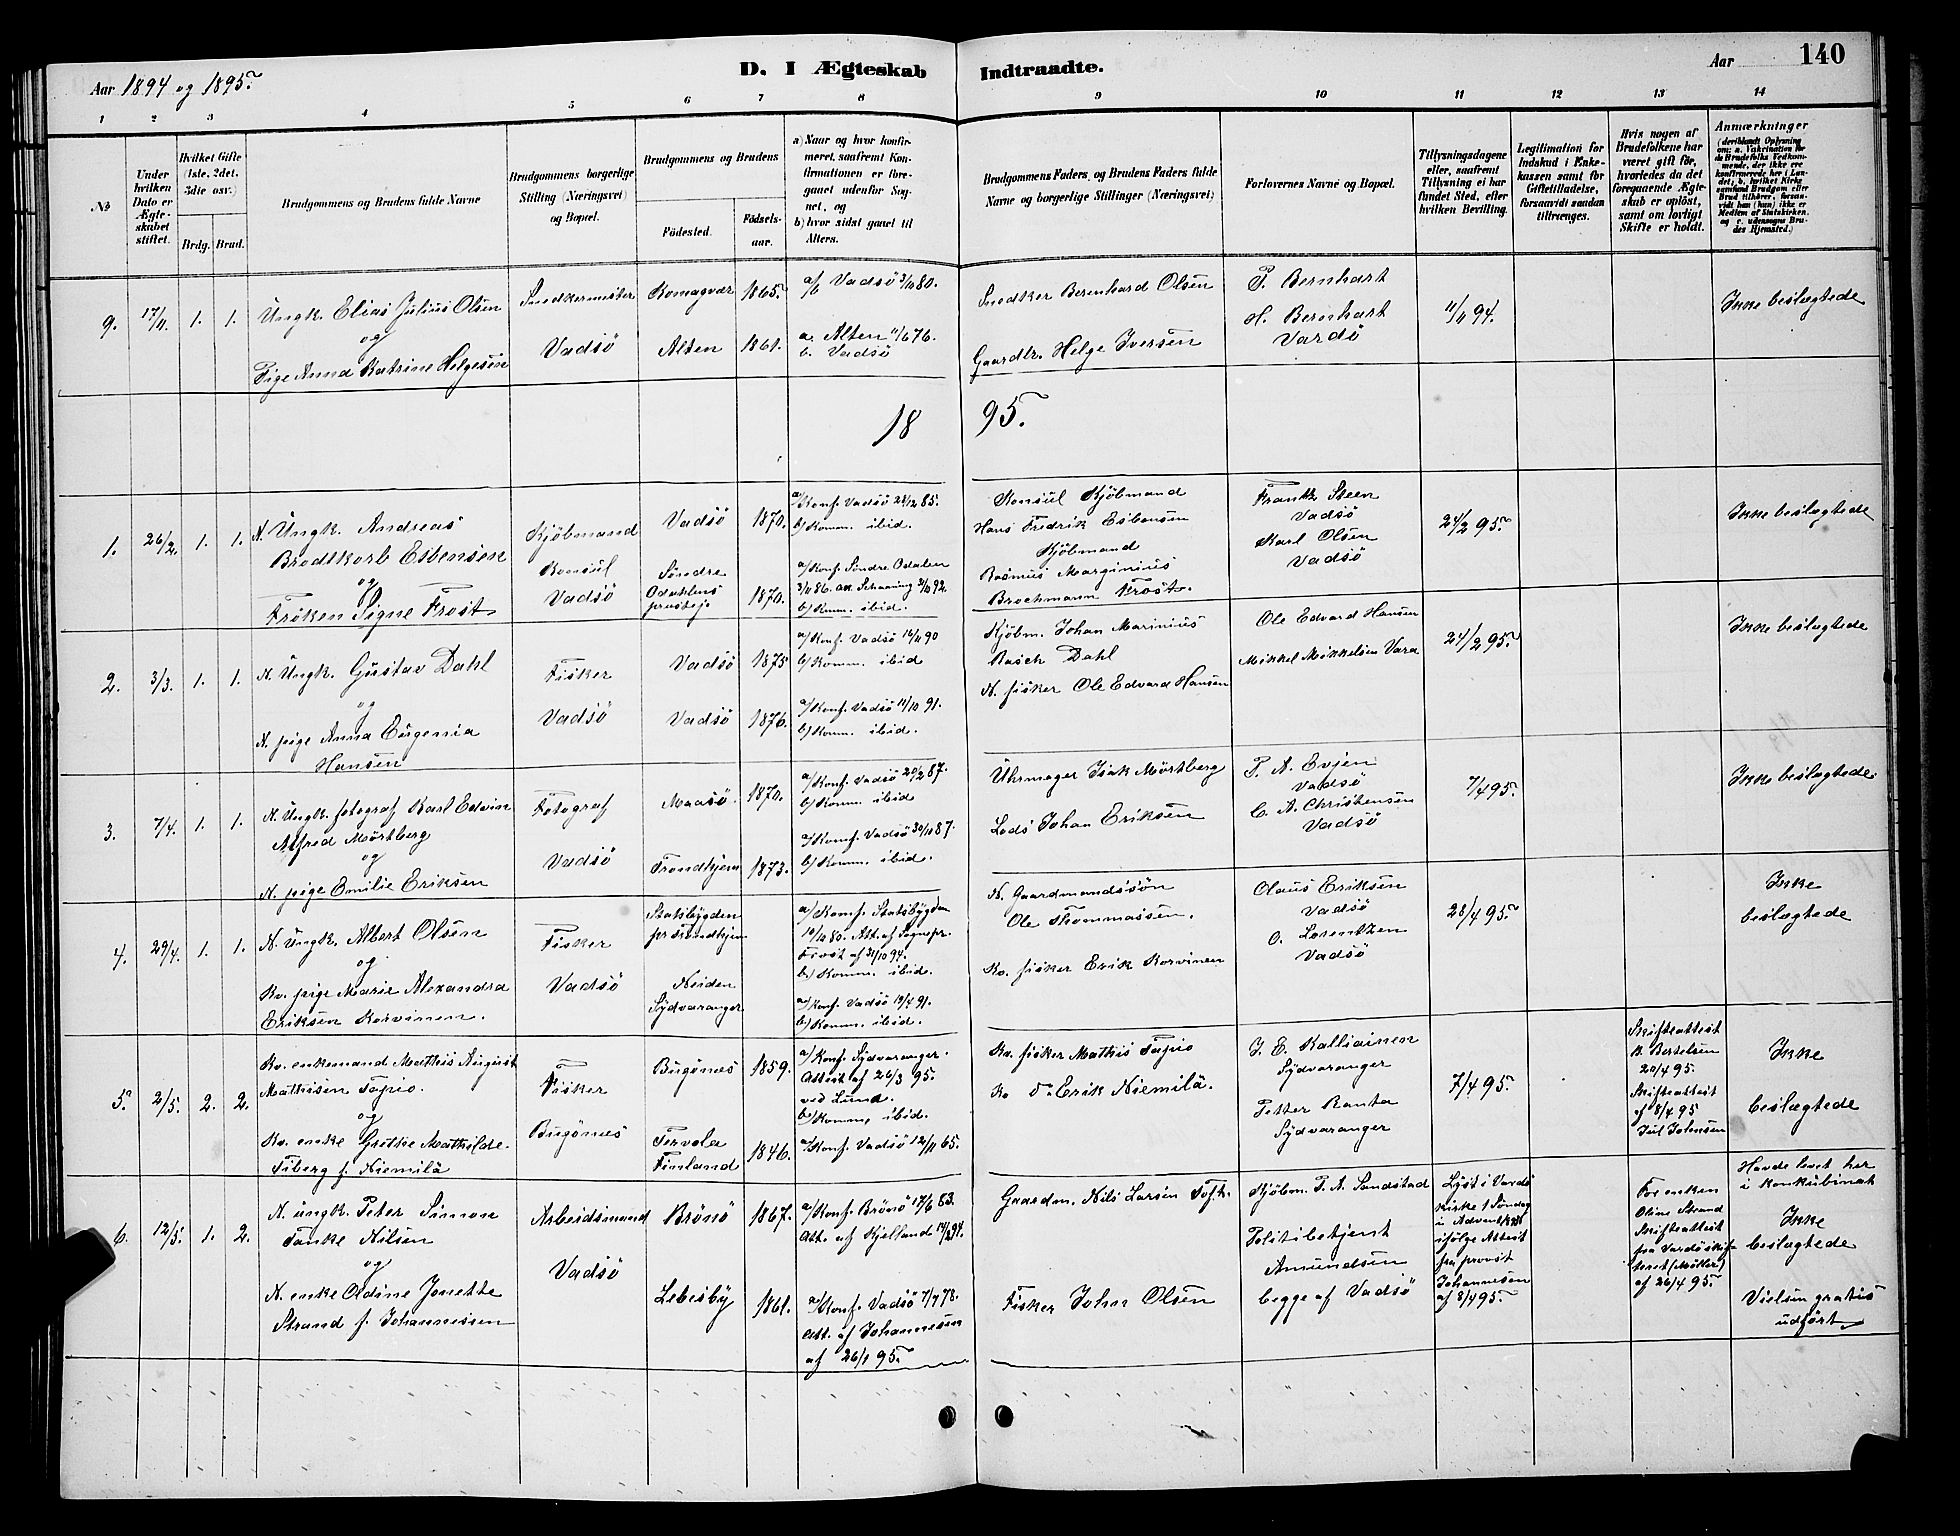 Aar 1894 og 1895.
D. I Ægteskab Indtraadte.
Aar
140
1 2 3 4 5 6 7 8 9 10 11 12 13 14
No
Under hvilken Dato er Ægteskabet stiftet.
Hvilket Gifte (1ste, 2det, 3die osv.)
Brdg. Brud.
Brudgommens og Brudens fulde Navne
Brudgommens borgerlige Stilling (Næringsvei) og Bopæl.
Brudgommens og Brudens
Födested.
Födsels-aar.
a) Naar og hvor konfir-
meret, saafremt Kon-
firmationen er fore-
gaaet udenfor Sog-
net, og
b) hvor sidst gaaet til
Alters.
Brudgommens Faders og Brudens Faders fulde
Navne og borgerlige Stillinger (Næringsvei)
Forlovernes Navne og Bopæl.
Tillysningsdagene
eller, saafremt
Tillysning ei har
fundet Sted, efter
hvilken Bevilling.
Legitimation for
Indskud i Enke-
kassen samt for
Giftetilladelse,
forsaavidt saadan
tiltrænges.
Hvis nogen af
Brudefolkene har
været gift för,
hvorledes da det
foregaaende Ægte-
skab er oplöst,
samt om lovligt
Skifte er holdt.
Anmærkninger
(deriblandt Oplysning
om: a. Vakcination for
de Brudefolks Vedkom-
mende, der ikke ere
konfirmerede her i Lan-
det; b. hvilket Kirke-
samfund Brudgom eller
Brud tilhører, forsaa-
vidt han (hun) ikke er
Medlem af Statskirken,
og c. udensogns Bru-
des Hjemsted.)
9. 17/11. 1. 1.
Ungk. Elias Julius Olsen
og
Pige Anna Katrine Helgesen
Snedkermester
Vadsö
Komagvær 1865.
Alten 1861.
a/b Vadsö 3/10 80.
a. Alten 11/6 76.
b. Vadsö
Snedker Berenhard Olsen
Gaardbr. Helge Iversen
P. Bernhart
H. Bernhart
Vardö
11/11 94.
Ikke beslægtede
18 95.
1. 26/2. 1. 1.
N. Ungk. Andreas
Brodtkorb Esbensen
og
Fröken Signe Frost
Kjöbmand
Konsul
Vadsö
Vadsö 1870.
Söndre
Odalens
prestegj. 1870.
a/ Konf. Vadsö 28/12 85.
b/ Komm. ibid.
a/ Konf. Söndre Odalen
3/10 86. Att. Schaaning 3/10 92.
b/ Komm. ibid.
Konsul Kjöbmand
Hans Fredrik Esbensen
Kjöbmand
Rasmus Marginius
Brochmann Frost.
Frantz Steen
Vadsö
Karl Olsen
Vadsö
24/2 95.
Ikke beslægtede
2. 3/3. 1. 1.
N. Ungk. Gustav Dahl
og
N. pige Anna Eugenia
Hansen
Fisker
Vadsö
Vadsö 1875
Vadsö 1876.
a/ Konf. Vadsö 16/11 90
b/ Komm. ibid
a/ Konf. Vadsö 11/10 91.
b/ Komm. ibid.
Kjöbm. Johan Marinius
Rasch Dahl
N. fisker Ole Edvard Hansen
Ole Edvard Hansen
Mikkel Mikkelsen Vara
24/2 95.
Ikke beslægtede
3. 7/4. 1. 1.
N. Ungk. fotograf Karl Edvin
Alfred Mörtberg
og
N. pige Emilie Eriksen
Fotograf
Vadsö
Maasö. 1870.
Trondhjem 1873.
a/ Konf. Vadsö 20/2 87.
b/ Komm. ibid
a/ Konf. Vadsö 30/10 87.
b/ Komm. ibid.
Uhrmager Isak Mörtberg
Lods Johan Eriksen
P. A. Evjen
Vadsö
C. A. Christensen
Vadsö
7/4 95.
Ikke beslægtede
4. 29/4. 1. 1.
N. Ungk. Albert Olsen
og
Kv. pige Marie Alexandra
Eriksen Korvinen.
Fisker
Vadsö
Statsbygden
pr Trondhjem
Neiden
Sydvaranger
a/ Konf. Statsbygden
10/10 80. Att. af Sognepr.
Frost af 31/10 94.
b/ Komm. ibid.
a/ Konf. Vadsö 19/4 91.
b/ Komm. ibid.
N. Gaardmandssön
Ole Thommassen.
Kv. fisker Erik Korvinen
Olaus Eriksen
Vadsö
O. Lorentzen
Vadsö
28/4 95.
Ikke
beslægtede
5. 2/5. 2. 2.
Kv. enkemand Mathis August
Mathisen Tapio.
og
Kv. enke Grethe Mathilde
Tiberg f. Niemilä
Fisker
Bugönes
Bugönes 1859.
Tervola
Finland 1846.
a/ Konf. Sydvaranger.
Attest af 26/3 95.
ved Lund.
b/ Komm. ibid.
a/ Konf. Vadsö 12/11 65.
Kv. fisker Mathis Tapio
Kv Do Erik Niemilä.
J. E. Kalliainen
Sydvaranger
Petter Ranta
Sydvaranger
7/4 95.
Skifteattest
B. Bertelsen
20/4 95.
Skifteattest
af 8/4 95
Jul Johnsen
Ikke
beslægtede
6. 12/5. 1. 2.
N. ungk. Peter Simon
Tanke Nilsen
og
N. enke Oldine Jonette
Strand f. Johannessen
Arbeidsmand
Vadsö
Brönö 1867.
Lebesby 1861.
a/ Konf. Brönö 17/6 83.
Att. af Kjelland
a/ Konf. Vadsö 7/7 78.
Att. af Johannesen
af 26/1 95.
Gaardm. Nils Larsen Toft.
Fisker John Olsen
Kjöbm. P. A. Sandstad
Politibetjent
Amundsen
begge af Vadsö
Lyst i Vardö
kirke 1 Söndag
i Advent
ifölge Attest
fra provst
Johannesen
af 8/4 95.
For enken
Oline Strand
Skifteattest
fra Vardö skif-
teret (Möller)
af 26/4 95.
Havde levet her
i Konkubinat
Ikke
beslægtede
Vielsen gratis
udfört